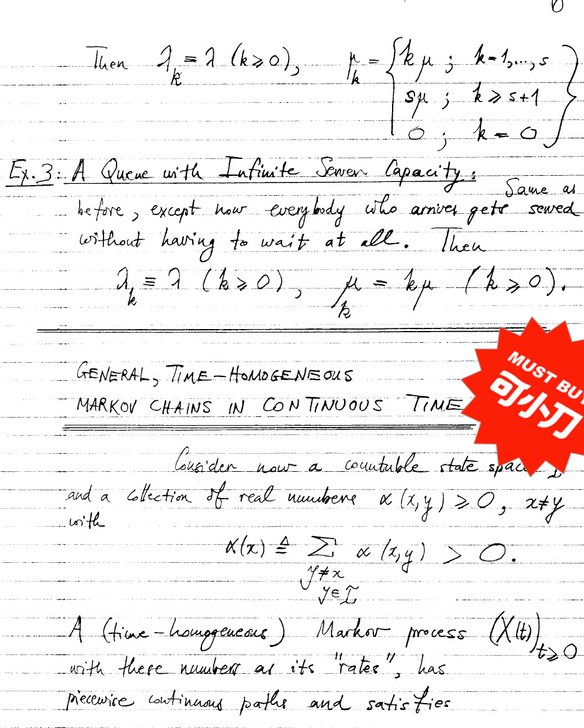 Then λ_k ≡ λ (k≥0), μ_k = { kμ ; k=1,...,s
sμ ; k ≥ s+1
0 ; k = 0 }
Ex. 3: A Queue with Infinite Server Capacity: Same as
before, except now everybody who arrives gets served
without having to wait at all. Then
λ_k ≡ λ (k≥0), μ_k = kμ (k≥0).
GENERAL, TIME-HOMOGENEOUS
MARKOV CHAINS IN CONTINUOUS TIME
MUST BUY
可小刀
Consider now a countable state space
and a collection of real numbers α(x,y) ≥ 0, x≠y
with
α(x) ≜ Σ α(x,y) > 0.
y≠x
y∈I
A (time-homogeneous) Markov process (X(t))_{t≥0}
with these numbers as its "rates", has
piecewise continuous paths and satisfies